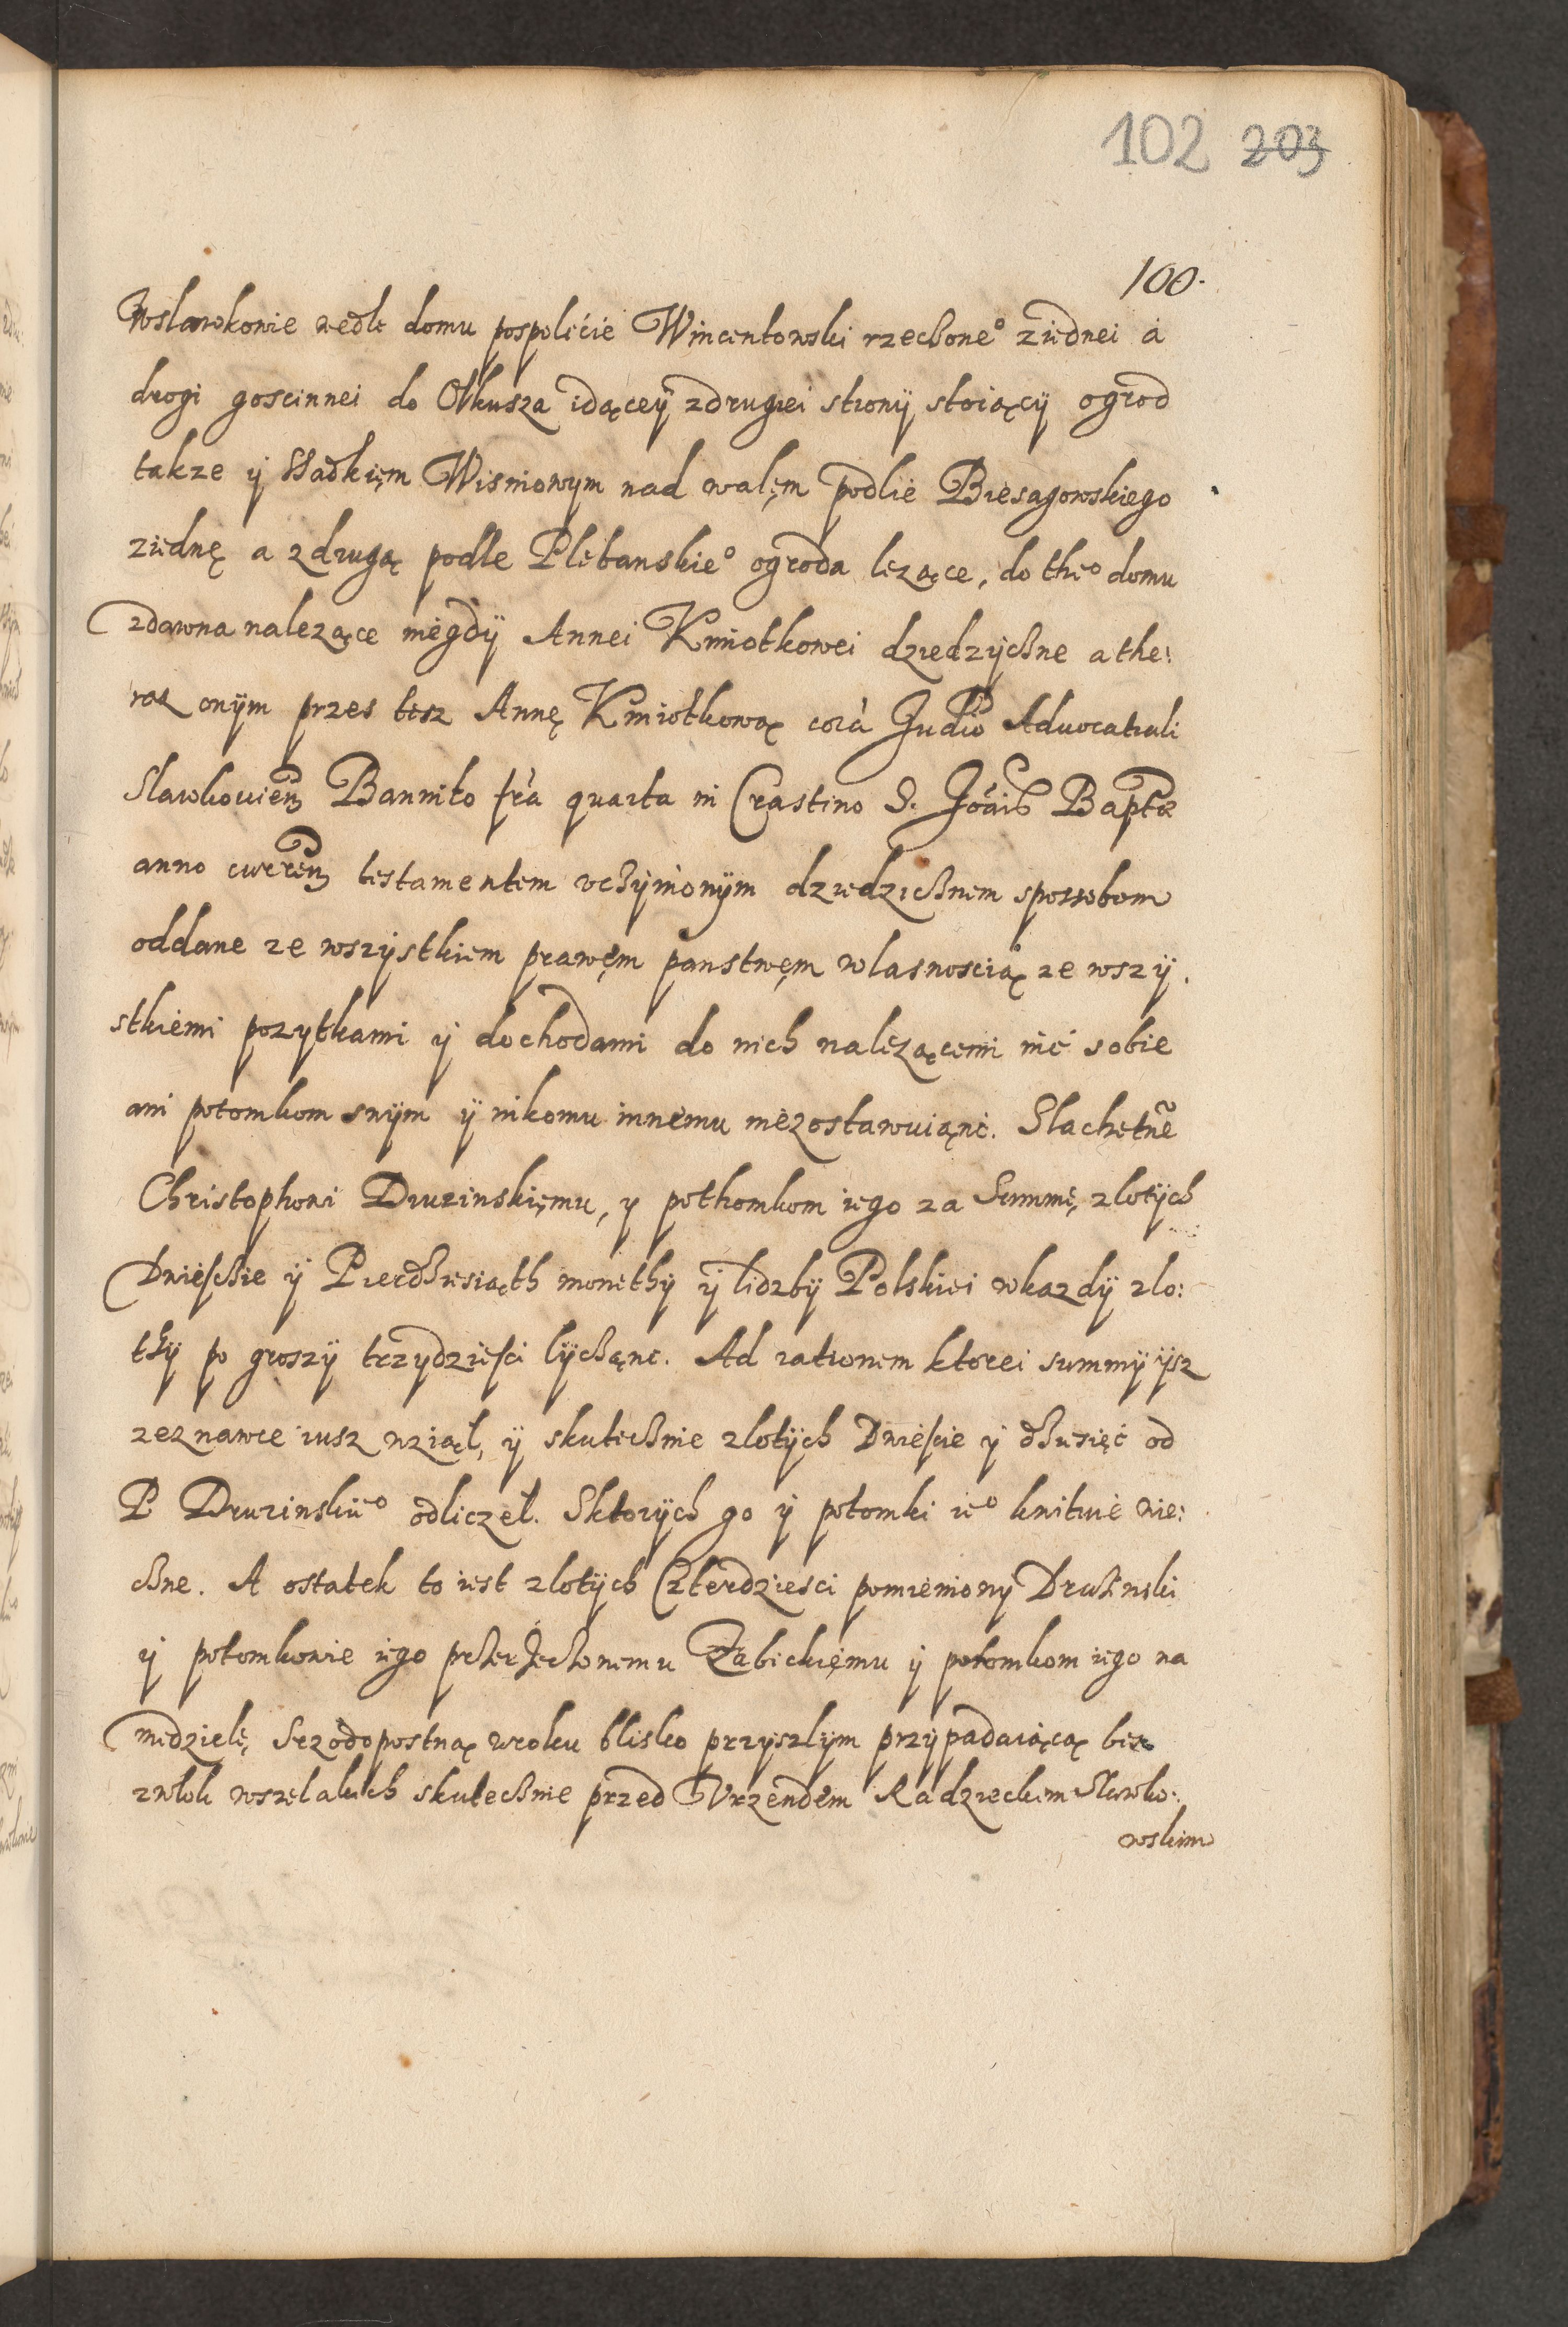 102 203
100.
Wslawkowie wedle domu pospolicie Wincentowski rzeczone° ziednei a
drogi goscinnei do Olkusza idącey zdrugiei strony stoiący ogrod
takze ÿ Ssadkięm Wisniowym nad walęm podlie Biesagowskiego
ziednę a zdrugą podle Plebanskie° ogroda lezące, do the° domu
zdawna nalezące niegdÿ Annei Kmiotkowei dziedzÿczne a the:
raz onÿm przes tesz Annę Kmiotkową corā Judio Aduocatiali
Slawkouien Bannito fr̄a quarta in Crastino S. Joāis Baptæ
anno curren testamentem vczÿnionÿm dziedzicznem spossobem
oddane ze wszÿstkiem prawęm panstwęm wlasnoscią ze wszÿ.
stkiemi pozytkami ÿ dochodami do nich nalezącemi nić sobie
ani potomkom swÿm ÿ nikomu innemu niezostawuiąnc. Slachetnē
Christophowi Druzinskięmu, y pothomkom iego za Summę, zlotÿch
Dwieſczie ÿ Pierdzÿesiąth monethÿ ÿ lidzbÿ Polskiei wkazdÿ zlo:
thÿ po groszÿ trzydzieſci lÿcząnc. Ad rationem ktorei summÿ ÿsz
zeznawce iusz wziął, ÿ skutecznie zlotÿch Dwieſcie ÿ dziesięć od
P. Druzinskie° odliczeł. Sktorÿch go ÿ potomki ie° kwituie wie:
czne. A ostatek to iest zlotÿch Czterdziesci pomieniony Druzinski
ÿ potomkowie iego przerzeczonemu Zabickięmu ÿ potomkom iego na
niedzielę, Srzodopostną wroku blisko przyszlÿm przÿpadaiącą bez
zwłok wszelakich skutecznie przed Vrzendem Radzieckim Slawko.
wskim